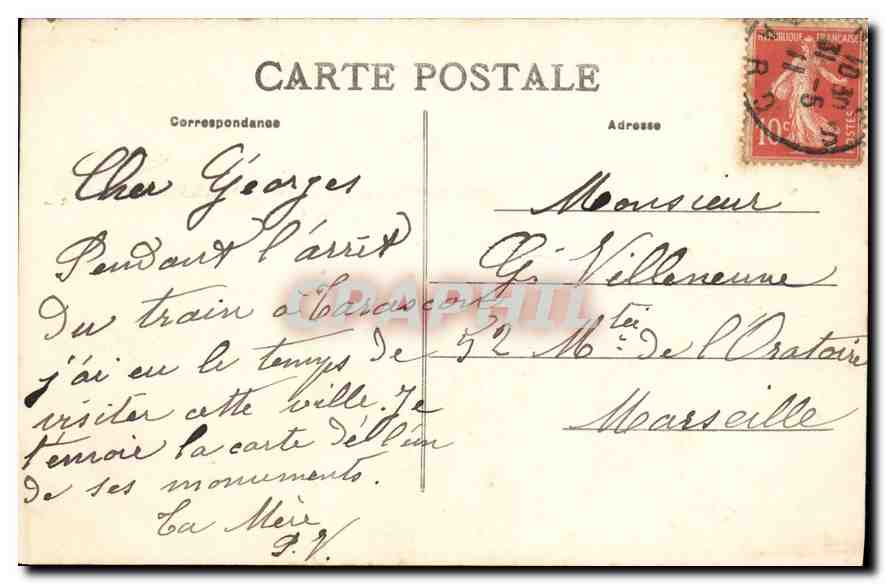 CARTE POSTALE
Correspondance
Adresse
RÉPUBLIQUE FRANÇAISE
10c
POSTES
10 30
31 - 5
11
Cher Géorges
Pendant l'arrêt
du train à Tarascon
j'ai eu le temps de
visiter cette ville. Je
t'envoie la carte de l'un
de ses monuments.
Ta Mère
P. V.
Monsieur
G. Villeneuve
52 Mtée de l'Oratoire
Marseille
CPAPHIL